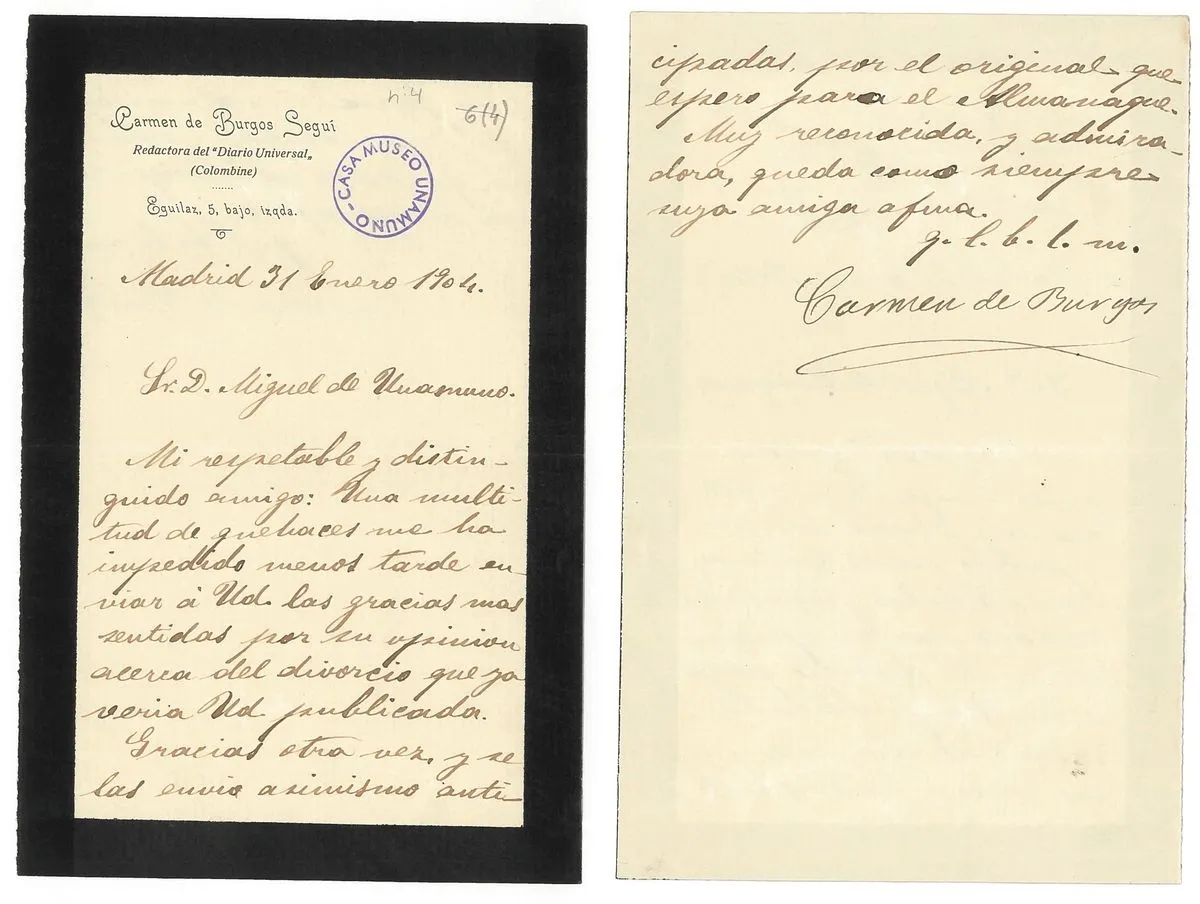 nº 4
6(4)
Carmen de Burgos Seguí
Redactora del "Diario Universal„
(Colombine)
Eguilaz, 5, bajo, izqda.
CASA MUSEO UNAMUNO -
Madrid 31 Enero 1904.
Sr. D. Miguel de Unamuno.
Mi respetable y distin-
guido amigo: Una multi-
tud de quehaces me ha
impedido menos tarde en
viar á Ud. las gracias mas
sentidas por su opinion
acerca del divorcio que ya
veria Ud. publicada.
Gracias otra vez, y se
las envio asimismo anti-
cipadas, por el original que
espero para el Almanaque.
Muy reconocida, y admira-
dora, queda como siempre
suya amiga afma.
q. l. b. l. m.
Carmen de Burgos